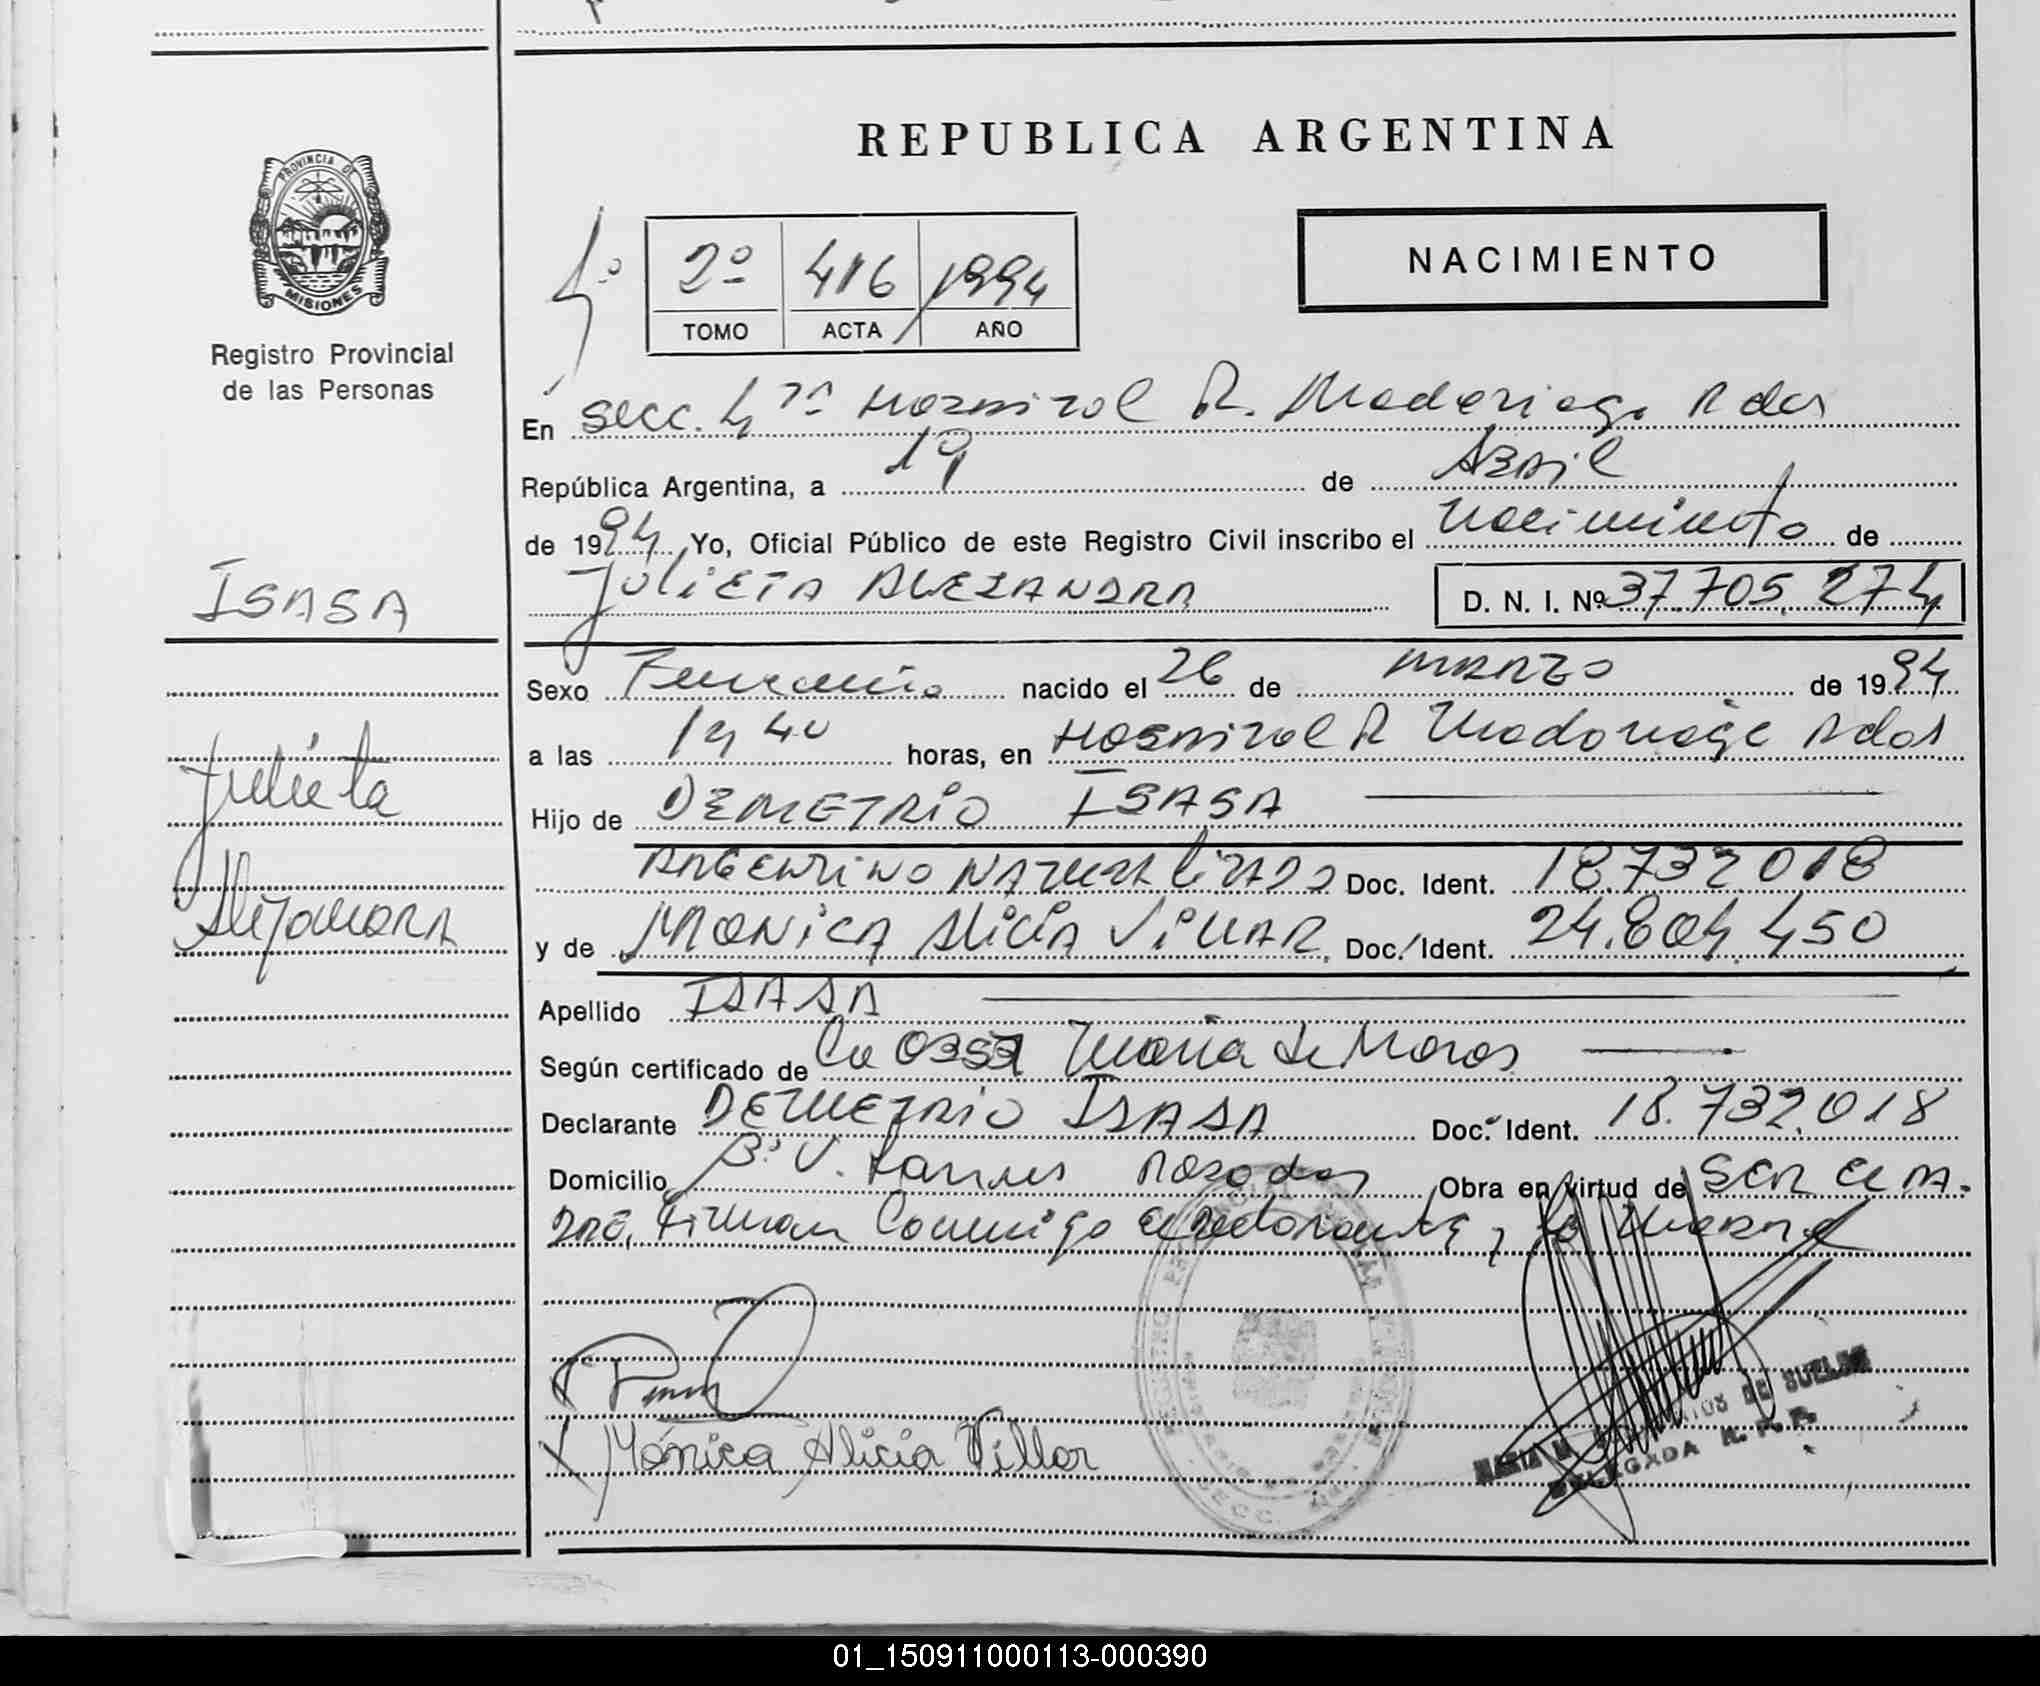 REPUBLICA ARGENTINA
PROVINCIA DE
MISIONES
Registro Provincial
de las Personas
NACIMIENTO
4º 2º 416 1994
TOMO ACTA AÑO
En Secc. 4ta Hospital R. Madariaga Pdas
República Argentina, a 19 de Abril
de 1994 Yo, Oficial Público de este Registro Civil inscribo el nacimiento de
JULIETA ALEJANDRA D. N. I. Nº 37.705.274
ISASA
Sexo Femenino nacido el 26 de MARZO de 1994
a las 14 40 horas, en Hospital R Madariaga Pdas
Julieta
Hijo de DEMETRIO ISASA
ARGENTINO NATURALIZADO Doc. Ident. 18.732018
Alejandra
y de MONICA ALICIA VILLAR Doc. Ident. 24.804.450
Apellido ISASA
Según certificado de La Obst Maria de Moros
Declarante DEMETRIO ISASA Doc. Ident. 18.732.018
Domicilio Bº V. Posadas Obra en virtud de SER el PA-
DRE, Firman Conmigo el declarante y la madre
Mónica Alicia Villar
DE SUELDO
DELEGADA R. P. P.
01_150911000113-000390